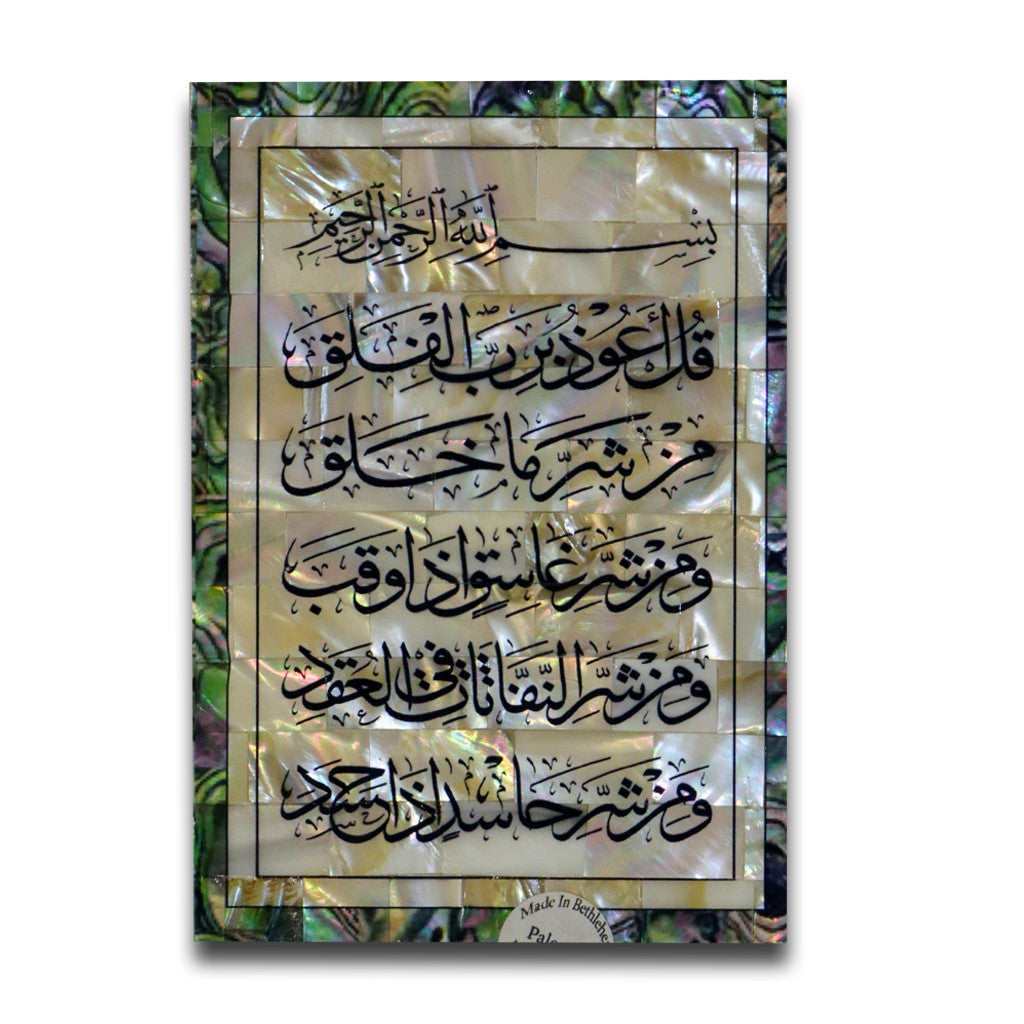 بِسْمِ ٱللَّهِ ٱلرَّحْمَٰنِ ٱلرَّحِيمِ
قُلْ أَعُوذُ بِرَبِّ الْفَلَقِ
مِنْ شَرِّ مَا خَلَقَ
وَمِنْ شَرِّ غَاسِقٍ إِذَا وَقَبَ
وَمِنْ شَرِّ النَّفَّاثَاتِ فِي الْعُقَدِ
وَمِنْ شَرِّ حَاسِدٍ إِذَا حَسَدَ
Made In Bethlehe